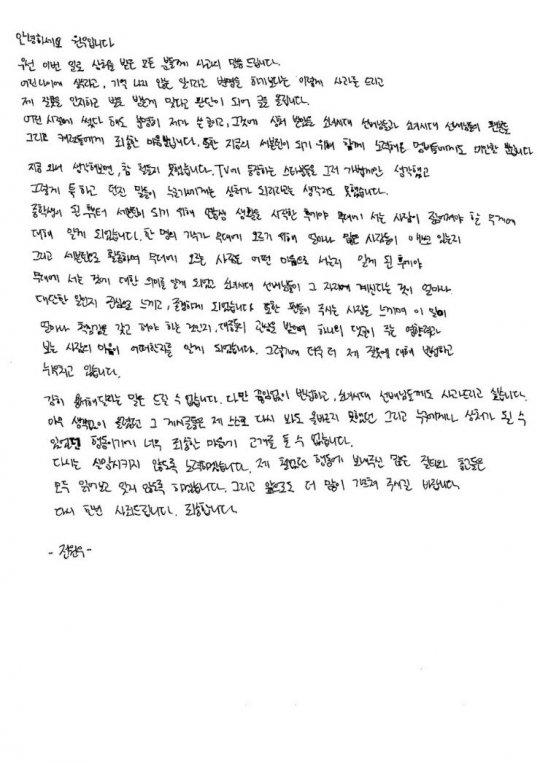 안녕하세요 원우입니다
우선 이번 일로 상처를 받은 모든 분들께 사과의 말씀 드립니다.
어린 나이에 생각하고, 기억 나지 않는 일이라고 변명을 하기보다는 이렇게 사과를 드리고
제 잘못을 인지하고 벌도 받는게 맞다고 판단이 되어 글을 올립니다.
어떤 시절에 썼다 해도 분명히 제가 쓴 글이고, 그것에 상처 받았을 소녀시대 선배님들과 소녀시대 선배님들의 팬분들
그리고 캐럿들에게 죄송한 마음뿐입니다. 또한 지금의 세븐틴이 되기 위해 함께 노력해온 멤버들에게도 미안할 뿐입니다
지금 와서 생각해보면, 참 철들지 못했습니다. TV에 등장하는 스타분들을 그저 가볍게만 생각했고
그렇게 툭 하고 던진 말들이 누군가에게는 상처가 되리라고는 생각지도 못했습니다.
중학생이 된 후부터 세븐틴이 되기 위해 연습생 생활을 시작한 후에야 무대에 서는 사람이 짊어져야 할 무게에
대해 알게 되었습니다. 한 명의 가수가 무대에 오르기 위해 얼마나 많은 사람들이 애쓰고 있는지
그리고 세븐틴으로 활동하며 무대에 오르는 사람은 어떤 마음으로 서는지 알게 된 후에야
무대에 서는 것에 대한 의미를 알게 되었고 소녀시대 선배님들이 그 자리에 계신다는 것이 얼마나
대단한 일인지 진심으로 느끼고, 존경하게 되었습니다 또한 팬들이 주시는 사랑을 느끼며 이 일이
얼마나 책임감을 갖고 해야 하는 것인지, 대중들의 관심을 받으며 하나의 댓글이 주는 영향력과
보는 사람의 마음이 어떠한지를 알게 되었습니다. 그렇기에 더욱 더 제 잘못에 대해 반성하고
뉘우치고 있습니다.
감히 용서해달라는 말은 드릴 수 없습니다. 다만 끊임없이 반성하고, 소녀시대 선배님들께도 사과드리고 싶습니다.
아무 생각없이 올렸었던 그 게시글들은 제 스스로 다시 봐도 올바르지 못했던 그리고 누군에게나 상처가 될 수
있었던 행동이기에 너무 죄송한 마음에 고개를 들 수 없습니다.
다시는 실망시키지 않도록 노력하겠습니다. 제 철없던 행동에 보내주신 많은 질타와 충고들은
모두 읽어보고 잊지 않도록 하겠습니다. 그리고 앞으로도 더 많이 가르쳐 주시길 바랍니다.
다시 한번 사죄드립니다. 죄송합니다.
- 전원우 -